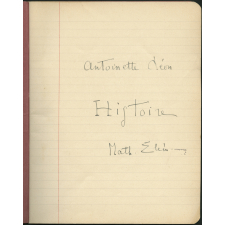 Antoinette Léon
Histoire
Math. Elém